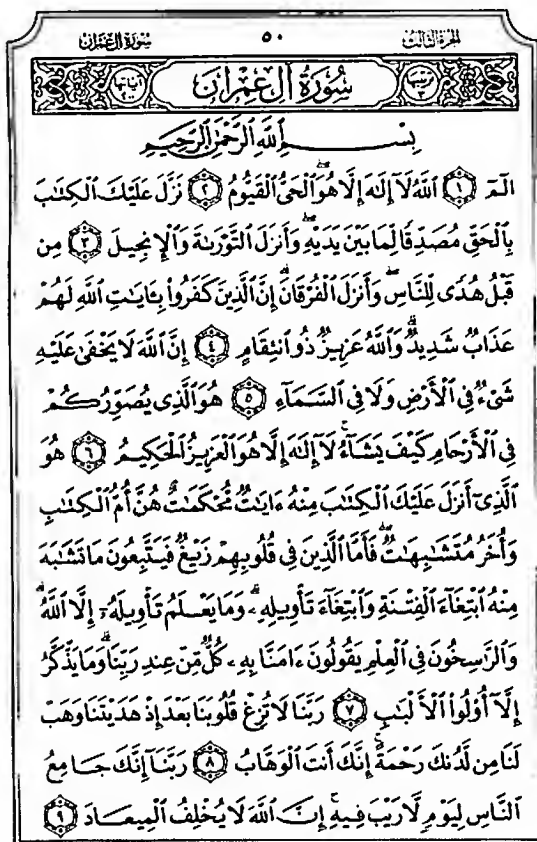 الجزء الثالث ٥٠ سورة آل عمران
ترتيبها ٣ سُورَةُ آلِ عِمْرَانَ آياتها ٢٠٠
بِسْمِ اللَّهِ الرَّحْمَٰنِ الرَّحِيمِ
الٓمٓ ١ ٱللَّهُ لَآ إِلَٰهَ إِلَّا هُوَ ٱلْحَىُّ ٱلْقَيُّومُ ٢ نَزَّلَ عَلَيْكَ ٱلْكِتَٰبَ
بِٱلْحَقِّ مُصَدِّقًا لِّمَا بَيْنَ يَدَيْهِ وَأَنزَلَ ٱلتَّوْرَىٰةَ وَٱلْإِنجِيلَ ٣ مِن
قَبْلُ هُدًى لِّلنَّاسِ وَأَنزَلَ ٱلْفُرْقَانَۗ إِنَّ ٱلَّذِينَ كَفَرُوا۟ بِـَٔايَٰتِ ٱللَّهِ لَهُمْ
عَذَابٌ شَدِيدٌۗ وَٱللَّهُ عَزِيزٌ ذُو ٱنتِقَامٍ ٤ إِنَّ ٱللَّهَ لَا يَخْفَىٰ عَلَيْهِ
شَىْءٌ فِى ٱلْأَرْضِ وَلَا فِى ٱلسَّمَآءِ ٥ هُوَ ٱلَّذِى يُصَوِّرُكُمْ
فِى ٱلْأَرْحَامِ كَيْفَ يَشَآءُۚ لَآ إِلَٰهَ إِلَّا هُوَ ٱلْعَزِيزُ ٱلْحَكِيمُ ٦ هُوَ
ٱلَّذِىٓ أَنزَلَ عَلَيْكَ ٱلْكِتَٰبَ مِنْهُ ءَايَٰتٌ مُّحْكَمَٰتٌ هُنَّ أُمُّ ٱلْكِتَٰبِ
وَأُخَرُ مُتَشَٰبِهَٰتٌۖ فَأَمَّا ٱلَّذِينَ فِى قُلُوبِهِمْ زَيْغٌ فَيَتَّبِعُونَ مَا تَشَٰبَهَ
مِنْهُ ٱبْتِغَآءَ ٱلْفِتْنَةِ وَٱبْتِغَآءَ تَأْوِيلِهِۦۗ وَمَا يَعْلَمُ تَأْوِيلَهُۥٓ إِلَّا ٱللَّهُۗ
وَٱلرَّٰسِخُونَ فِى ٱلْعِلْمِ يَقُولُونَ ءَامَنَّا بِهِۦ كُلٌّ مِّنْ عِندِ رَبِّنَاۗ وَمَا يَذَّكَّرُ
إِلَّآ أُو۟لُوا۟ ٱلْأَلْبَٰبِ ٧ رَبَّنَا لَا تُزِغْ قُلُوبَنَا بَعْدَ إِذْ هَدَيْتَنَا وَهَبْ
لَنَا مِن لَّدُنكَ رَحْمَةًۚ إِنَّكَ أَنتَ ٱلْوَهَّابُ ٨ رَبَّنَآ إِنَّكَ جَامِعُ
ٱلنَّاسِ لِيَوْمٍ لَّا رَيْبَ فِيهِۚ إِنَّ ٱللَّهَ لَا يُخْلِفُ ٱلْمِيعَادَ ٩